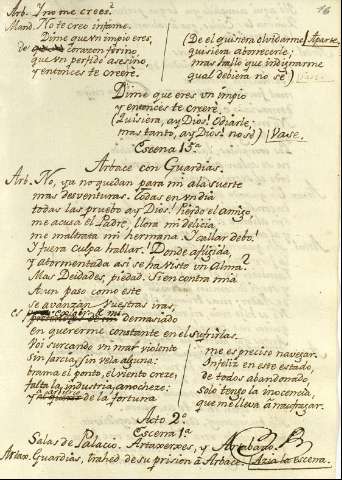 16
Arb. Y no me crees?
Mand. No te creo infame.
Dime que un impio eres,
de corazon ferino,
que un perfido asesino,
y entonces te creerè.
(De el quisiera olvidarme Aparte.
quisiera aborrecerle;
mas hallo que indignarme
qual debiera no sè) Vase.
Dime que eres un impio
y entonces te creerè.
(Quisiera, ay Dios! Odiarle,
mas tanto, ay Dios! no sè) Vase.
Escena 15ª
Arbace con Guardias.
Arb. No, ya no quedan para mi a la suerte
mas desventuras. Todas en un dia
todas las pruebo ay Dios! pierdo el amigo,
me acusa el Padre, llora mi delicia,
me maltrata mi hermana. Y callar debo!
Y fuera culpa hablar! Donde afligida,
y atormentada asi se ha visto un Alma?
Mas Deidades, piedad. Si encontra mia
A un paso como este
se avanzan vuestras iras,
es demasiado
en quererme constante en el sufrirlas.
Voi siercando un mar violento
Sin farcia, sin vela alguna:
brama el ponto, el viento creze,
falta la industria, anocheze:
y de la fortuna
me es preciso navegar.
Infeliz en este estado,
de todos abandonado
Solo tengo la inocencia,
que me lleva à naufragar.
Acto 2º
Escena 1ª
Salas de Palacio. Artaxerxes, y Artabano.
Artax. Guardias, trahed de su prision à Arbace. Azia la escena.